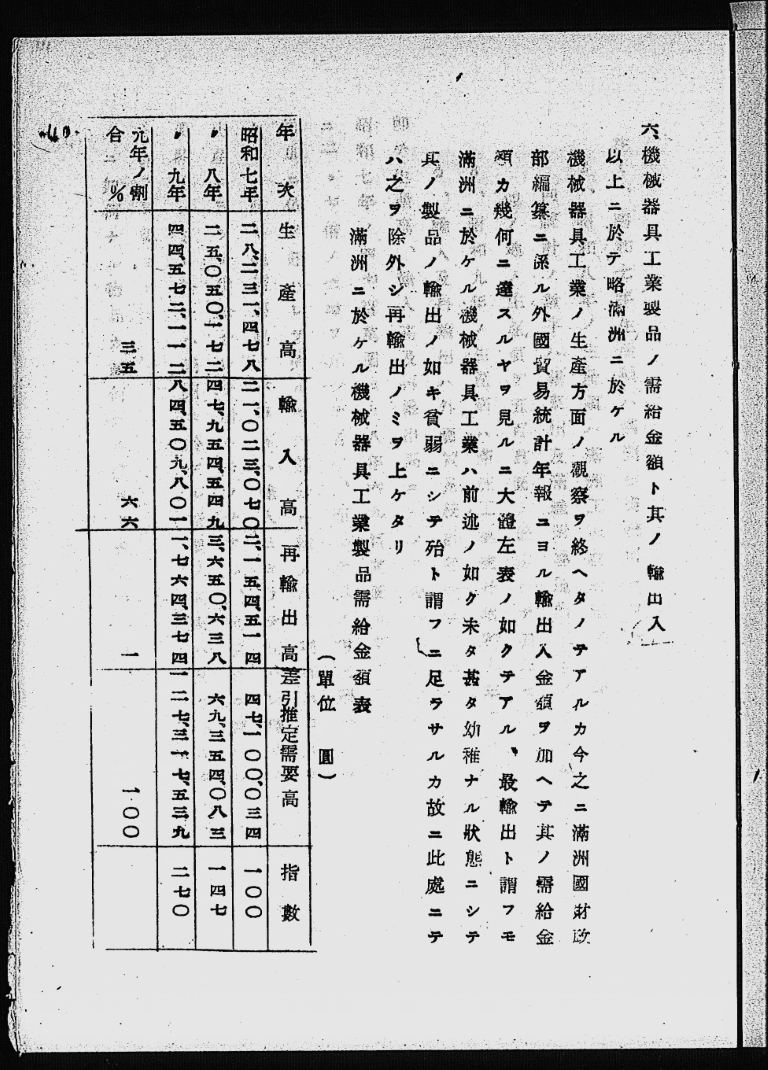 六、機械器具工業製品ノ需給金額ト其ノ輸出入
以上ニ於テ略滿洲ニ於ケル
機械器具工業ノ生產方面ノ觀察ヲ終ヘタノテアルカ今之ニ滿洲國財政
部編纂ニ係ル外國貿易統計年報ニヨル輸出入金額ヲ加ヘテ其ノ需給金
額カ幾何ニ達スルヤヲ見ルニ大體左表ノ如クテアル、最輸出ト謂フモ
滿洲ニ於ケル機械器具工業ハ前述ノ如ク未タ甚タ幼稚ナル狀態ニシテ
其ノ製品ノ輸出ノ如キ貧弱ニシテ殆ト謂フニ足ラサルカ故ニ此處ニテ
ハ之ヲ除外シ再輸出ノミヲ上ケタリ
滿洲ニ於ケル機械器具工業製品需給金額表
（單位　圓）
年次　生產高　輸入高　再輸出高　差引推定需要高　指數
昭和七年　二八、二三一、四七八　二一、〇二三、〇七〇　二、一五四、五一四　四七、一〇〇、〇三四　一〇〇
〃八年　二五、〇五〇、一七二　四七、九五四、五四九　三、六五〇、六三八　六九、三五四、〇八三　一四七
〃九年　四四、五七二、一一二　八四、五〇九、八〇一　一、七六四、三七四　一二七、三一七、五三九　二七〇
元年ノ割合％　三五　六六　一　一〇〇